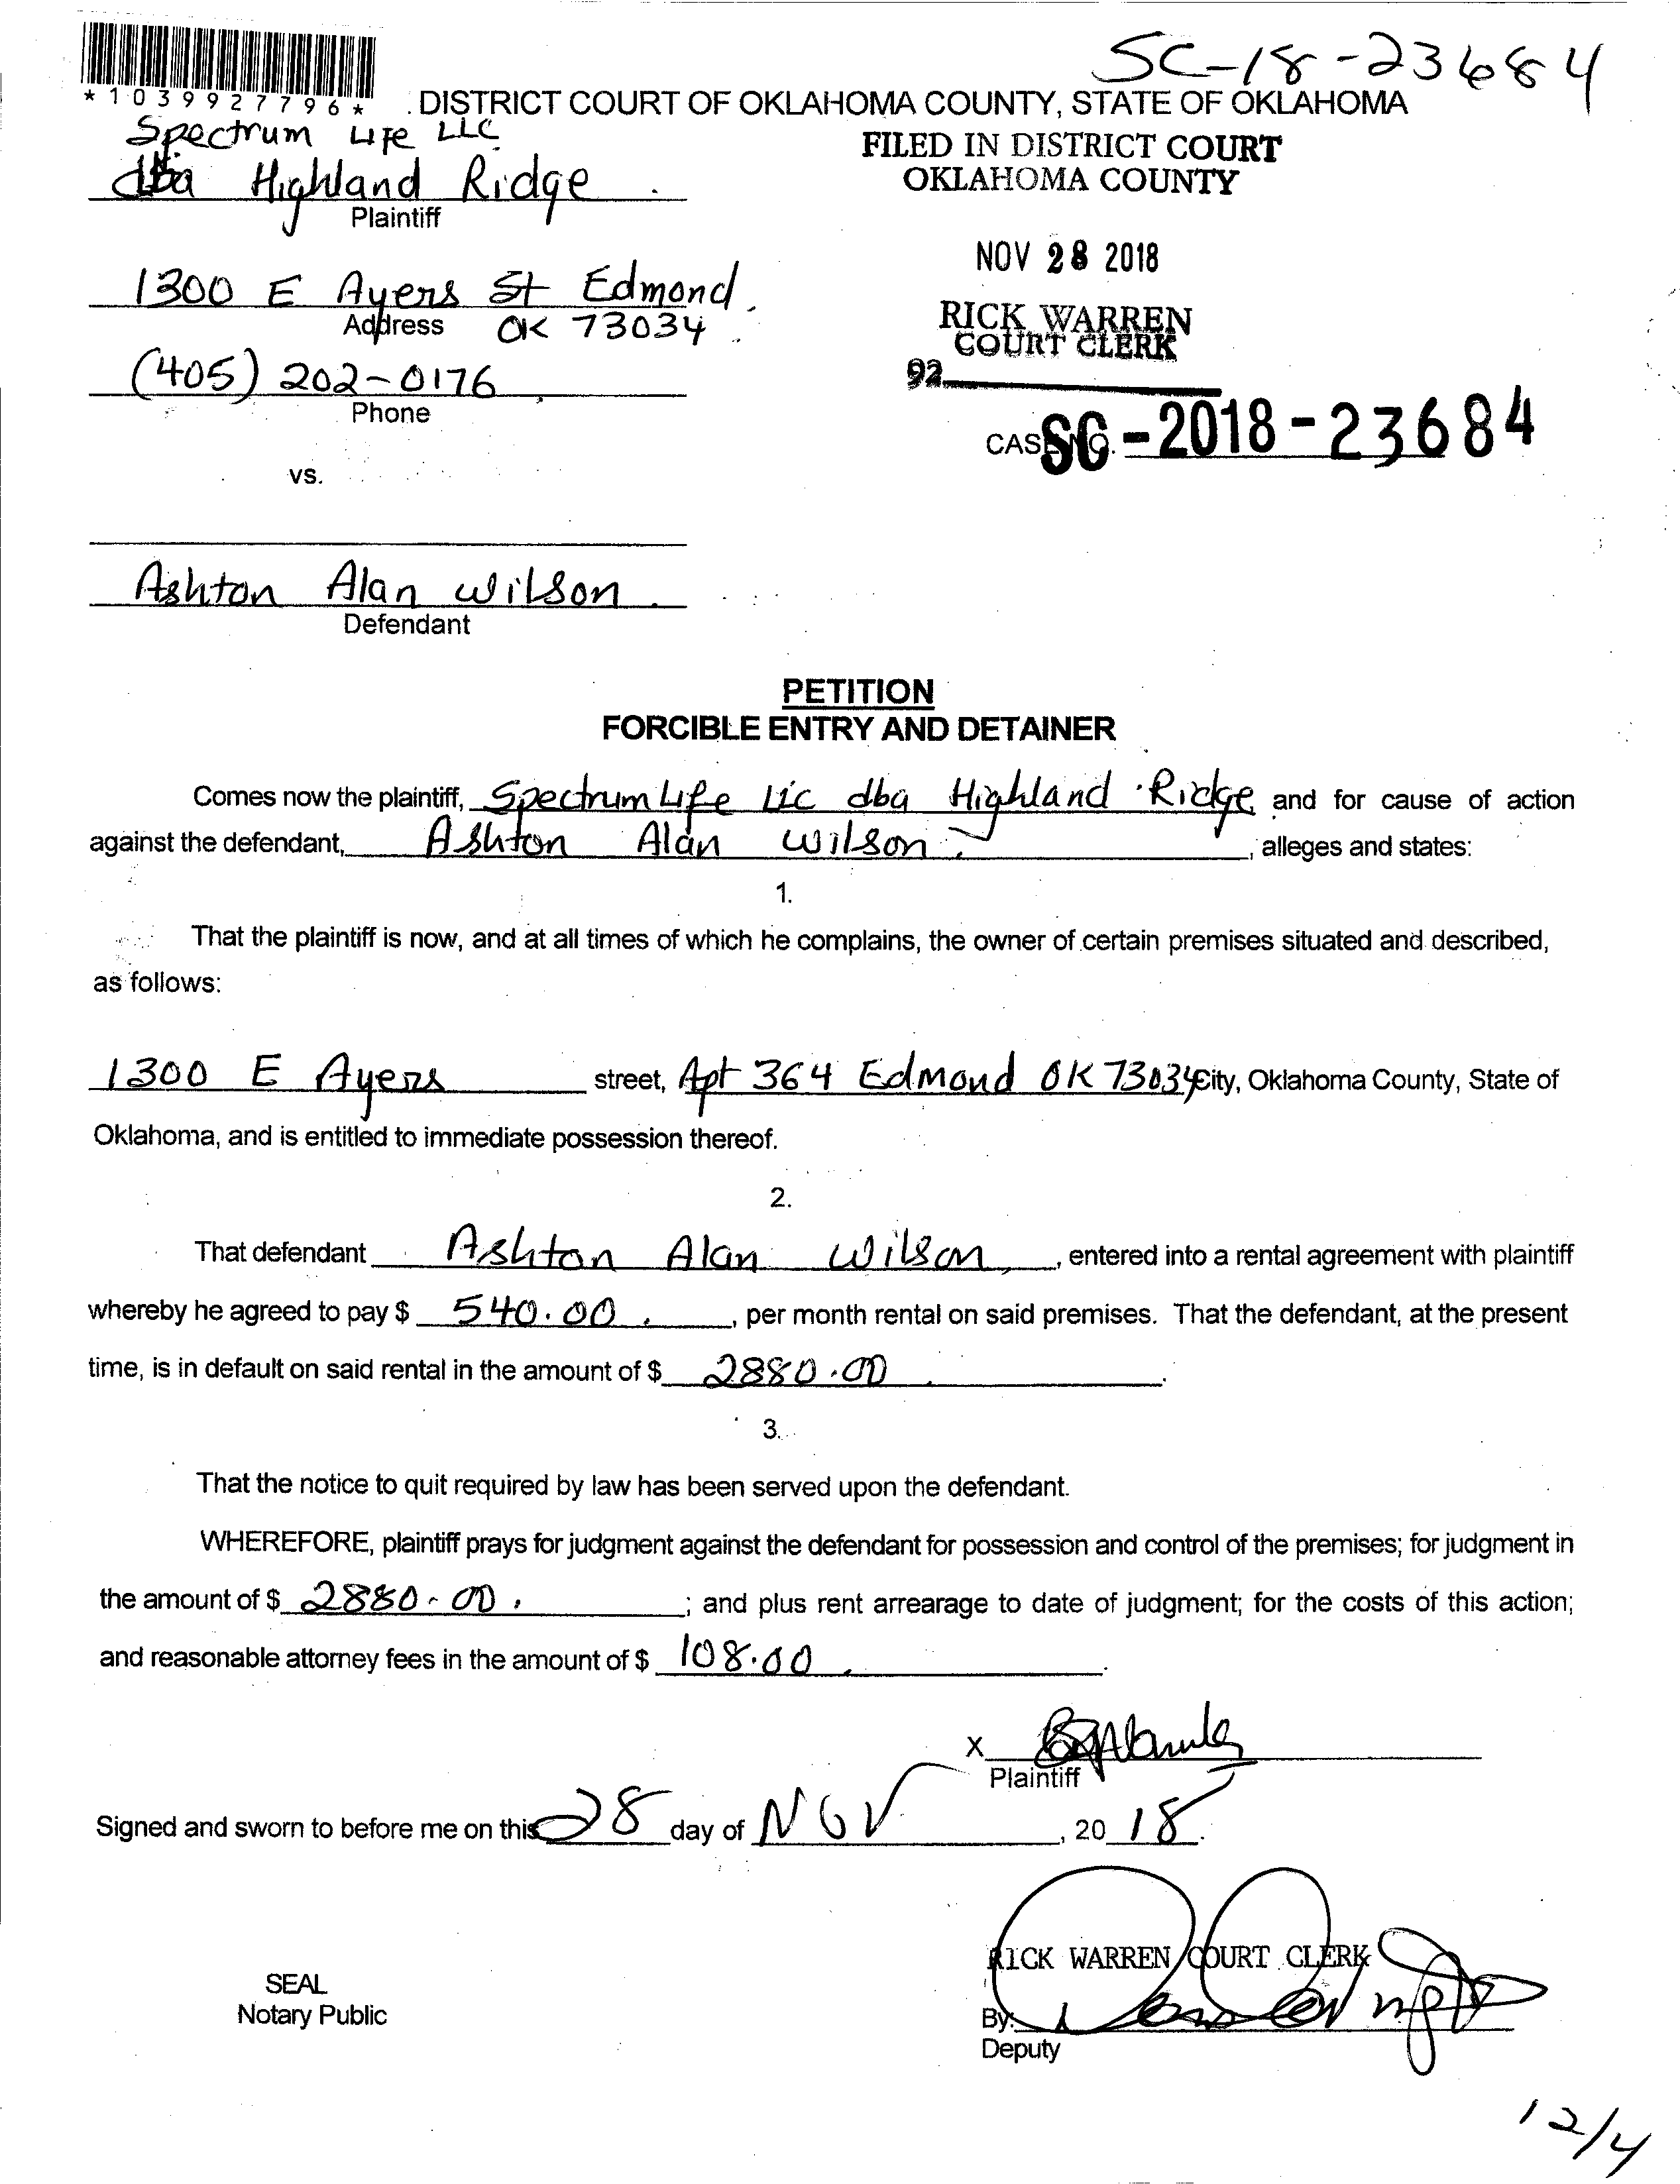 SC-18-23684
*1039927796*
DISTRICT COURT OF OKLAHOMA COUNTY, STATE OF OKLAHOMA
Spectrum Life LLC
dba Highland Ridge
Plaintiff
FILED IN DISTRICT COURT
OKLAHOMA COUNTY
NOV 28 2018
1300 E Ayers St Edmond
Address OK 73034
RICK WARREN
COURT CLERK
92
(405) 202-0176
Phone
CASE NO. SC-2018-23684
vs.
Ashton Alan Wilson
Defendant
PETITION
FORCIBLE ENTRY AND DETAINER
Comes now the plaintiff, Spectrum Life Llc dba Highland Ridge and for cause of action
against the defendant, Ashton Alan Wilson, alleges and states:
1.
That the plaintiff is now, and at all times of which he complains, the owner of certain premises situated and described,
as follows:
1300 E Ayers street, Apt 364 Edmond OK 73034 City, Oklahoma County, State of
Oklahoma, and is entitled to immediate possession thereof.
2.
That defendant Ashton Alan Wilson, entered into a rental agreement with plaintiff
whereby he agreed to pay $ 540.00, per month rental on said premises. That the defendant, at the present
time, is in default on said rental in the amount of $ 2880.00.
3.
That the notice to quit required by law has been served upon the defendant.
WHEREFORE, plaintiff prays for judgment against the defendant for possession and control of the premises; for judgment in
the amount of $ 2880.00; and plus rent arrearage to date of judgment; for the costs of this action;
and reasonable attorney fees in the amount of $ 108.00.
X
Plaintiff
Signed and sworn to before me on this 28 day of NOV, 2018.
RICK WARREN COURT CLERK
SEAL
Notary Public
By:
Deputy
12/4